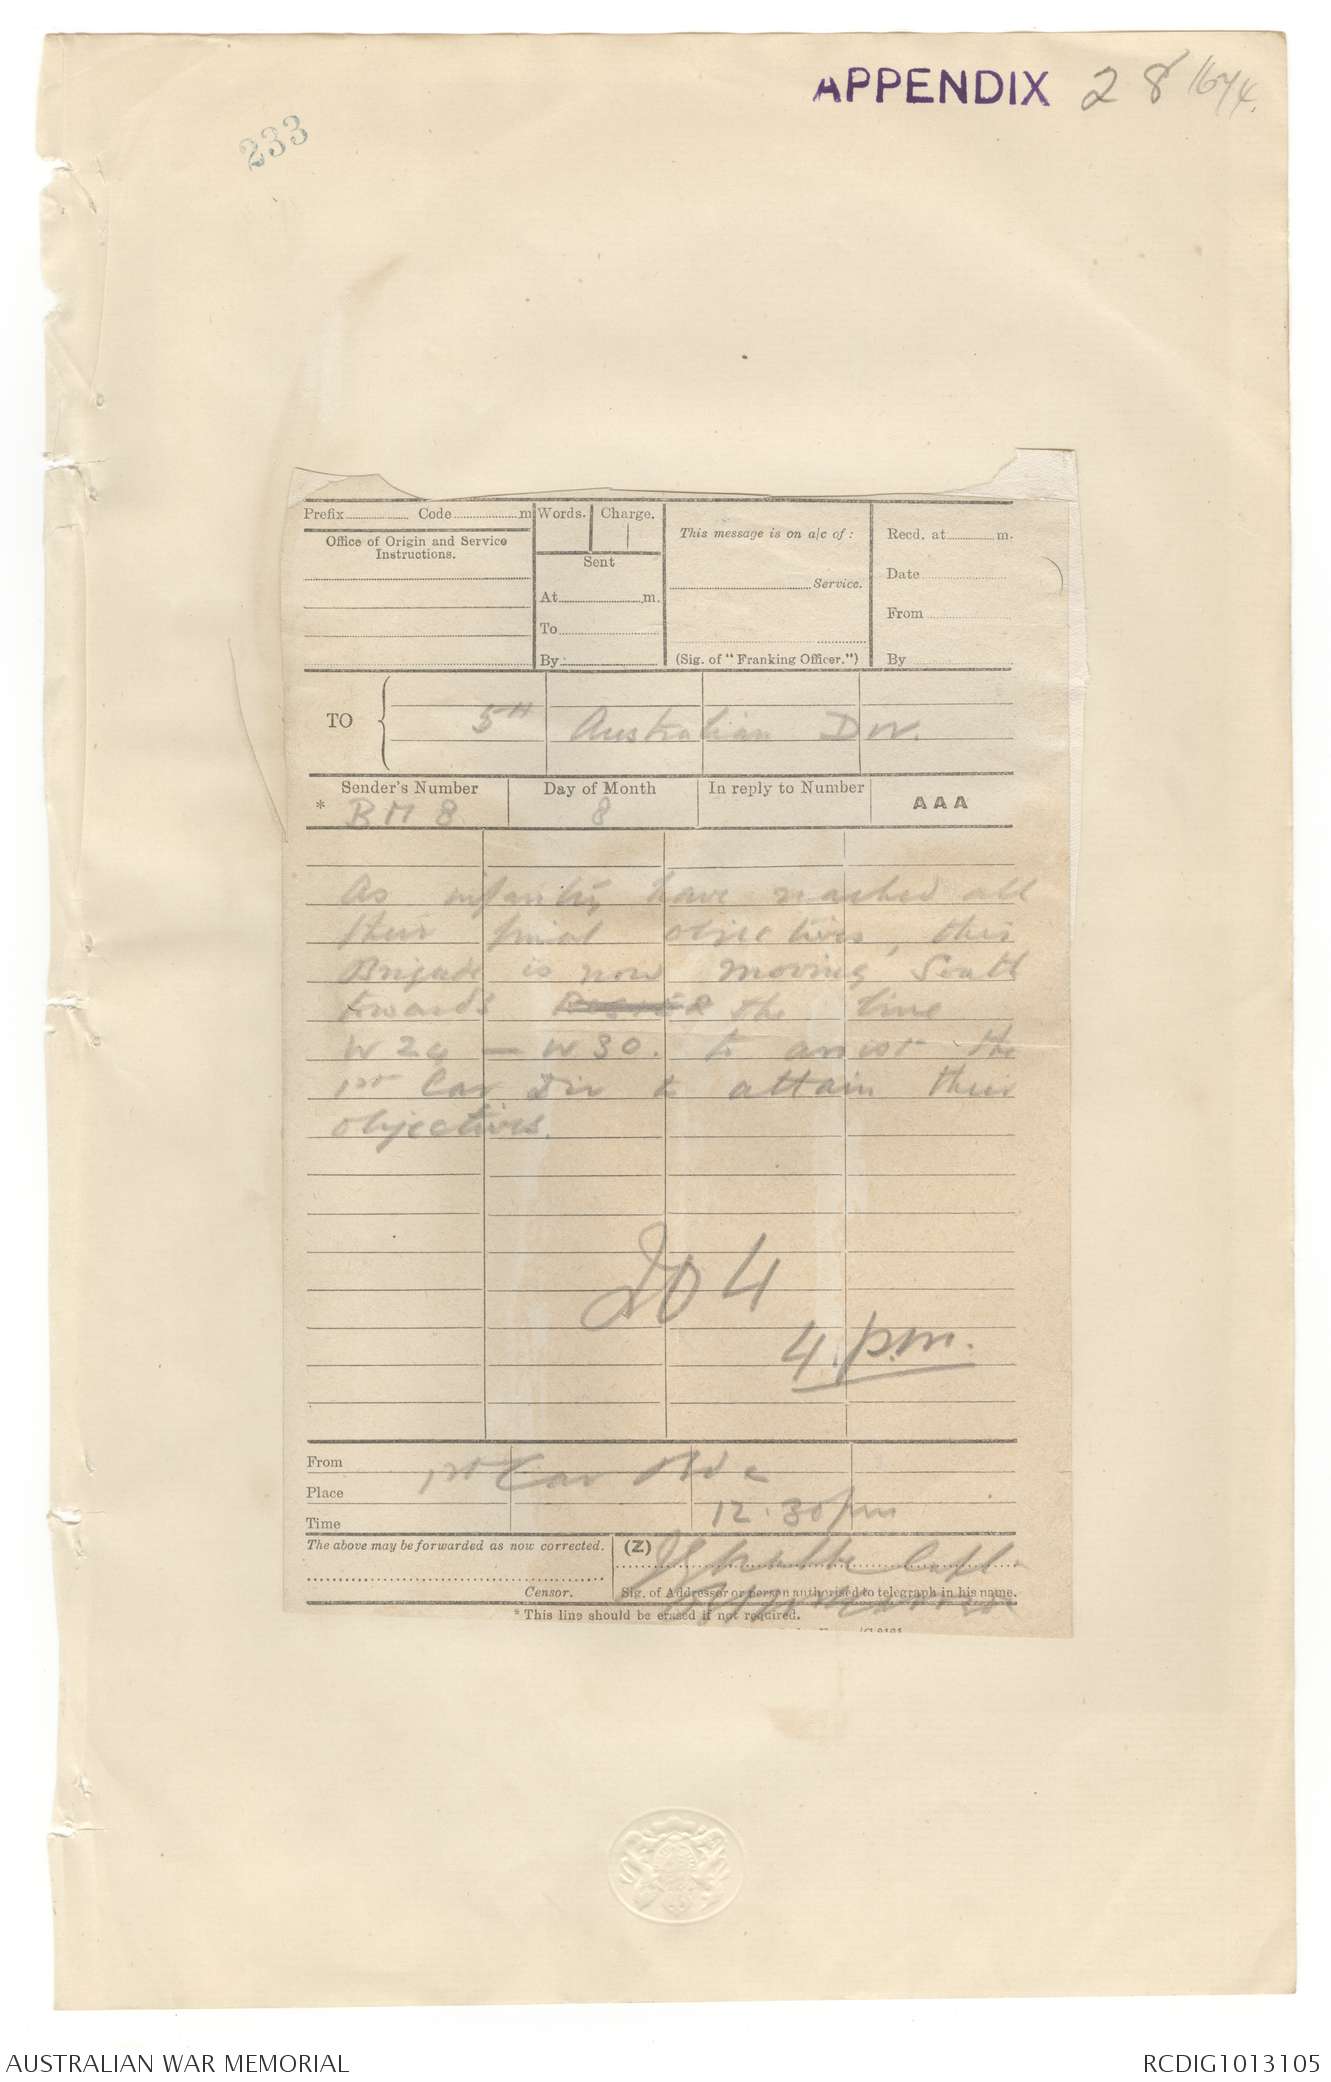 APPENDIX 28
233
Prefix Code m Words. Charge.
This message is on a/c of :
Recd. at m.
Office of Origin and Service
Instructions.
Sent
At m.
To
By
Service.
(Sig. of "Franking Officer.")
Date
From
By
TO
5TH Australian Div.
Sender's Number
Day of Month
In reply to Number
AAA
* BM 8 8
As infantry have reached all
their final objectives, this
Brigade is now moving South
towards the line
W 24 — W 30. to assist the
1st Cav Div to attain their
objectives.
204
4.pm.
From 1st Cav Bde
Place
Time 12.30 pm
The above may be forwarded as now corrected. (Z)
Capt
Censor.
Sig. of Addressor or person authorised to telegraph in his name.
* This line should be erased if not required.
AUSTRALIAN WAR MEMORIAL
RCDIG1013105